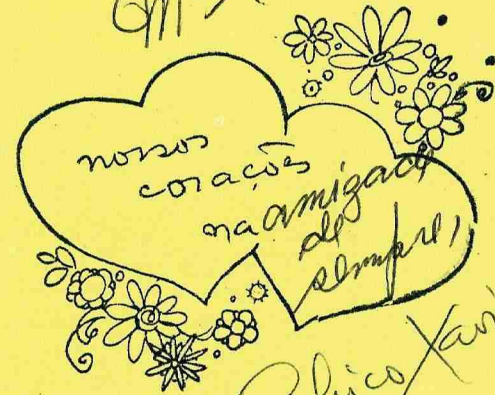 nossos
corações
na amizade
de
sempre,
Chico Xavi